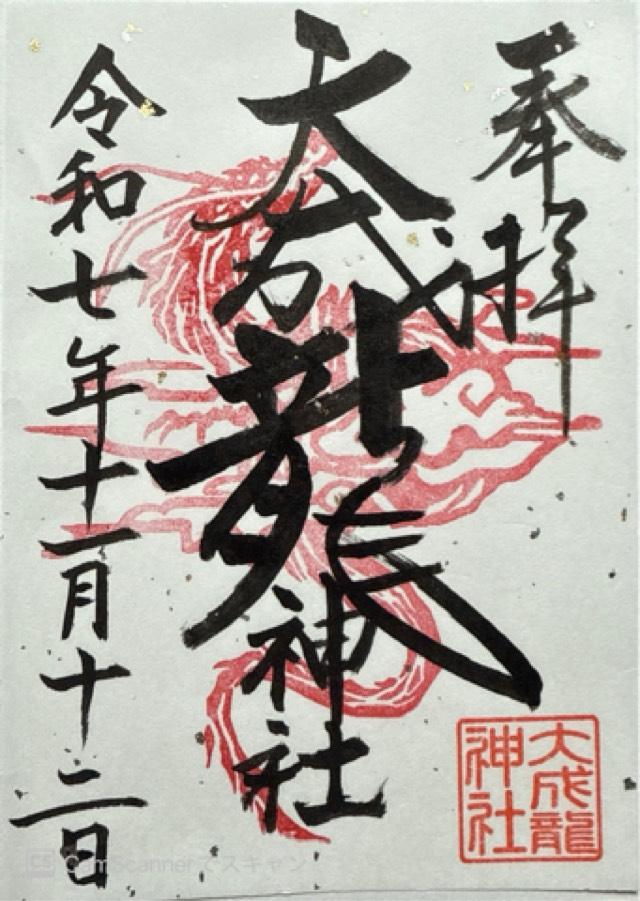 奉拝
大成龍神社
令和七年十一月十二日
大成龍
神社
CS CamScannerでスキャン